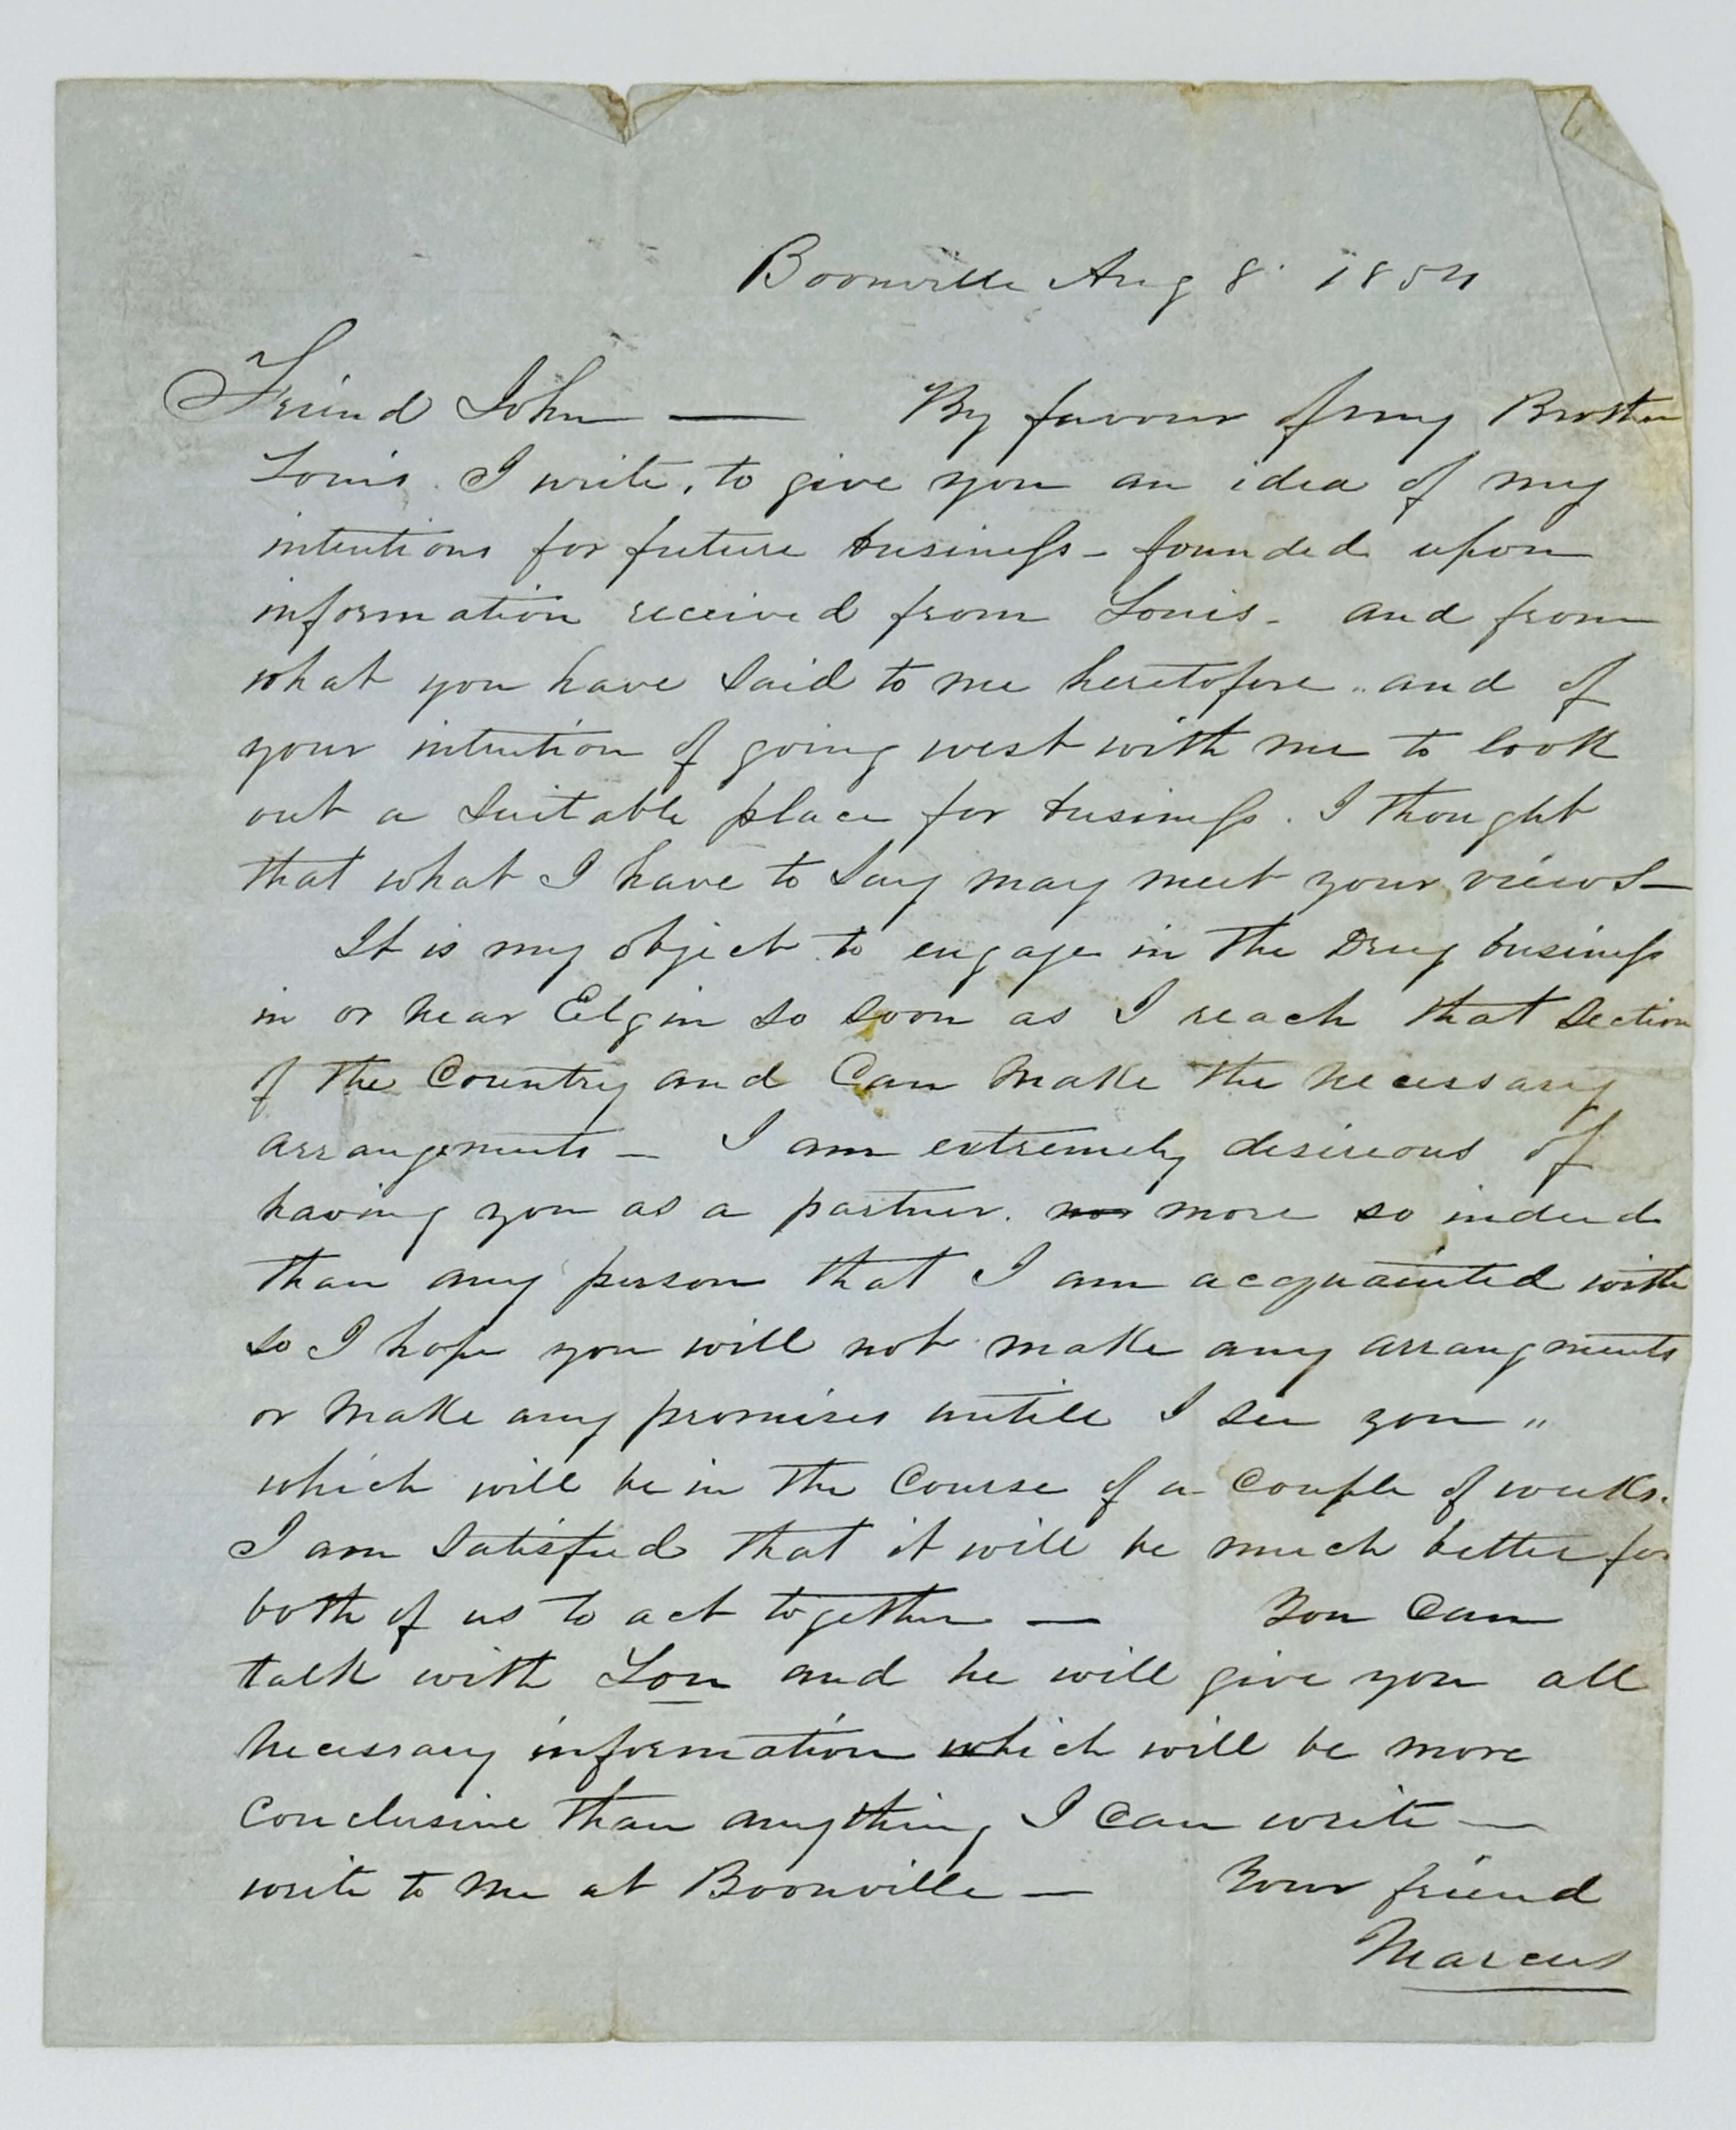 Boonville Aug 8 1854
Friend John — By favour of my Brother
Louis. I write, to give you an idea of my
intentions for future business - founded upon
information received from Louis - and from
what you have said to me heretofore.. and of
your intention of going west with me to look
out a suitable place for business. I thought
that what I have to say may meet your views —
It is my object to engage in the Drug business
in or near Elgin so soon as I reach that section
of the Country and Can make the necessary
arrangements — I am extremely desireous of
having you as a partner. more so indeed
than any person that I am acquainted with
so I hope you will not make any arrangments
or make any promises untill I see you "
which will be in the Course of a Couple of weeks.
I am satisfied that it will be much better for
both of us to act together — You Can
talk with Lou and he will give you all
necessary information which will be more
Conclusive than anything I Can write —
write to me at Boonville — Your friend
Marcus